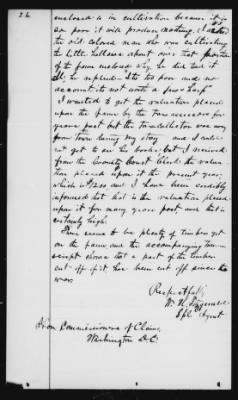 26
enclosed is in cultivation because it is
so poor it will produce nothing. I asked
the old colored man who was cultivating
the little hollows spot over that portion
of the farm enclosed why he did not till
it, he replied—Its too poor and no
account its not worth a Jews Harp
I wanted to get the valuation placed
upon the farm by the tax assessors for
years past but the tax collector was away
from town during my stay and I could
not get to see the books. but I received
from the County Court Clerk the valua
tion placed upon it the present year,
which is $1200 and I have been credibly
informed that that is the valuation placed
upon it for many years past and that is
certainly high.
There seems to be plenty of timber yet
on the farm, and the accompanying tran-
script shows that a part of the timber
cut off of it has been cut off since the
war.
Respectfully
W. H.
Spl. Agent
Hon Commissioners of Claims,
Washington D.C.